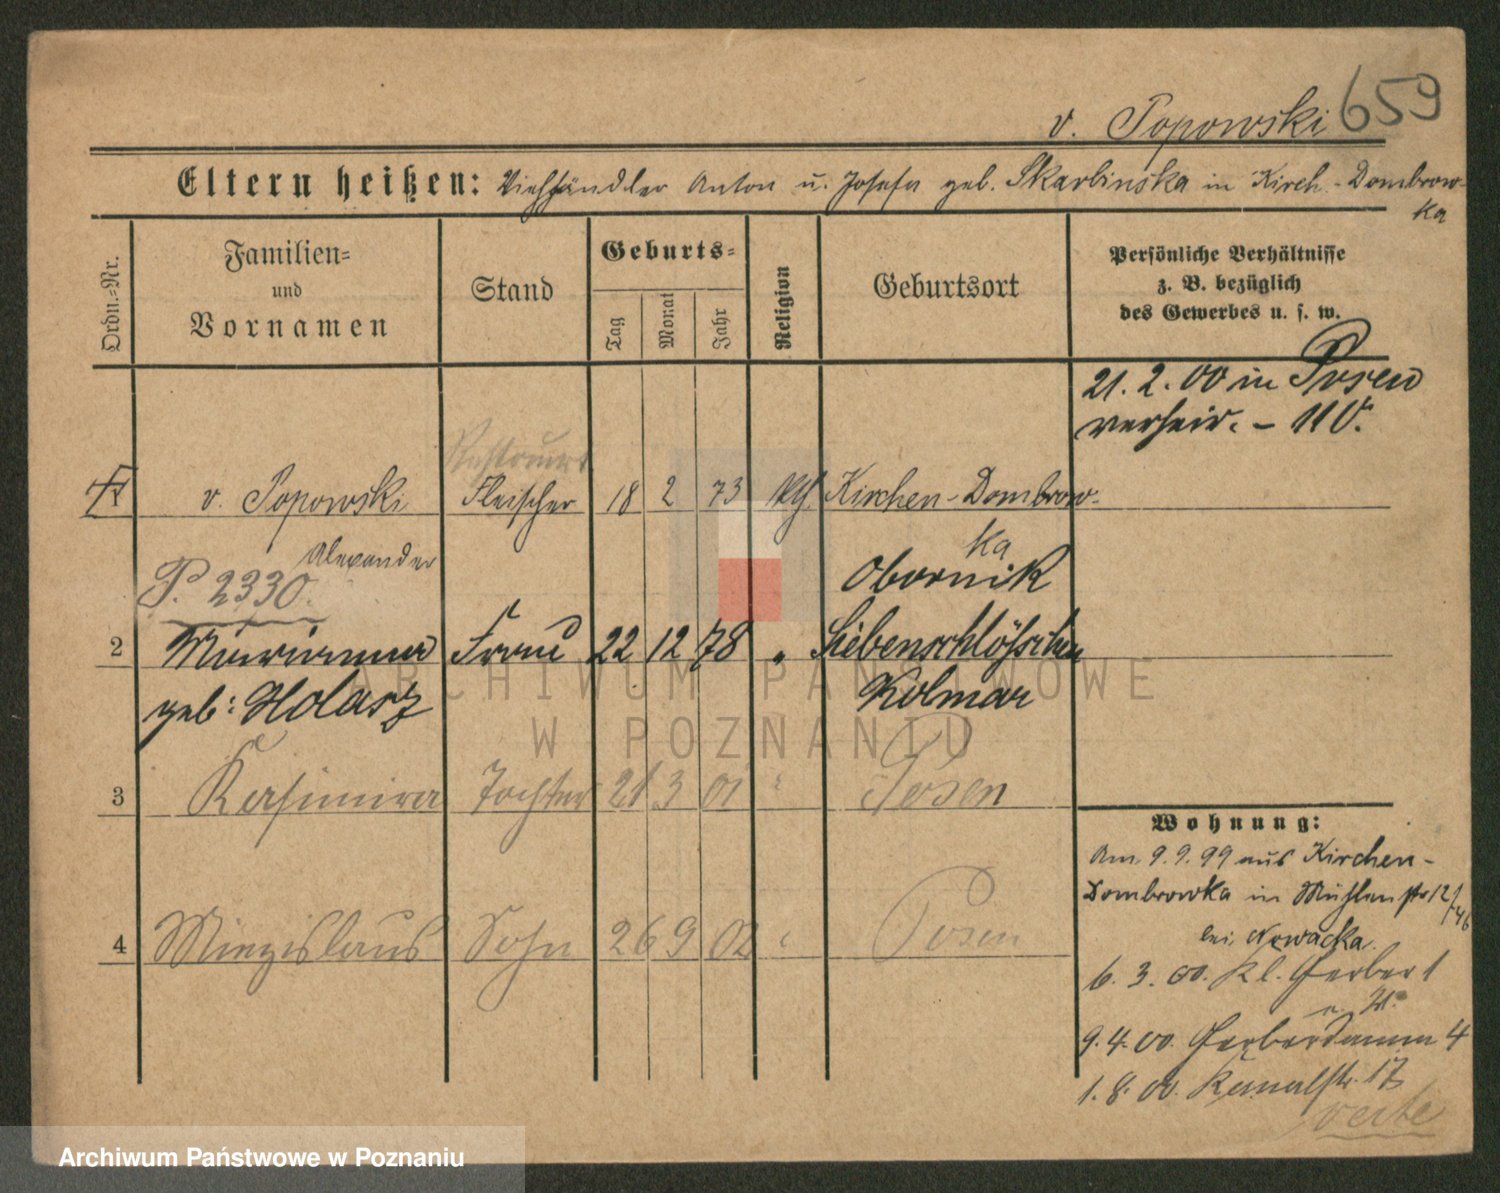 v. Popowski 659
Eltern heißen: Viehhändler Anton u. Josefa geb. Skarbinska in Kirch.-Dombrow-
ka
Ordn.-Nr.
Familien-
und
Vornamen
Stand
Geburts-
Tag
Monat
Jahr
Religion
Geburtsort
Persönliche Verhältnisse
z. B. bezüglich
des Gewerbes u. s. w.
21.2.00 in Posen
verheir. -
v. Popowski Fleischer 18 2 73 kth. Kirchen-Dombrow-
ka
Alexander
P. 2330.
Obornik
2 Marianna Frau 22 12 78 " Siebenschlößchen
geb: Holasz Kolmar
3 Kasimira Tochter 21 3 01 " Posen
4 Miezislaus Sohn 26 9 02 " Posen
Wohnung:
Am 9.9.99 aus Kirchen-
Dombrowka in Mühlenstr 12/46
bei Nowacka.
6.3.00. Kl. Gerber 1
9.4.00. Gerberdamm 4
1.8.00. Kanalstr. 17
verte
ARCHIWUM PAŃSTWOWE
W POZNANIU
Archiwum Państwowe w Poznaniu